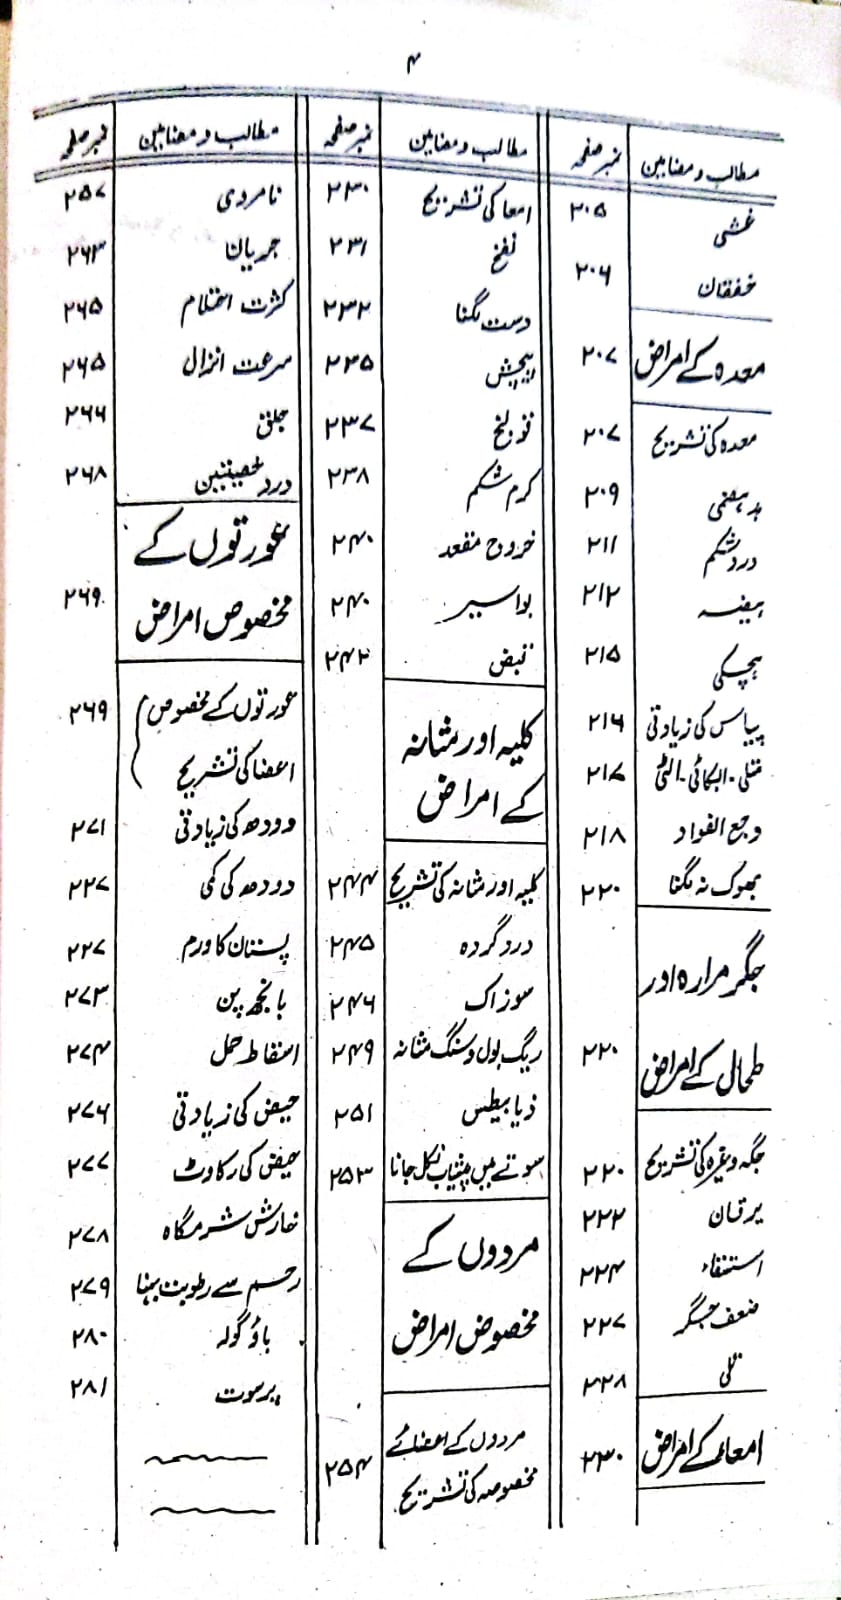 ۴
مطالب و مضامین نمبر صفحہ
غشی ۲۰۵
خفقان ۲۰۶
معدہ کے امراض ۲۰۷
معدہ کی تشریح ۲۰۷
بدہضمی ۲۰۹
درد شکم ۲۱۱
ہیضہ ۲۱۲
ہچکی ۲۱۵
پیاس کی زیادتی ۲۱۶
متلی - ابکائی - الٹی ۲۱۷
وجع الفواد ۲۱۸
بھوک نہ لگنا ۲۲۰
جگر مرارہ اور
طحال کے امراض ۲۲۰
جگر وغیرہ کی تشریح ۲۲۰
یرقان ۲۲۲
استسقاء ۲۲۴
ضعف جگر ۲۲۷
تلی ۲۲۸
امعاء کے امراض ۲۳۰
مطالب و مضامین نمبر صفحہ
امعا کی تشریح ۲۳۰
نفخ ۲۳۱
دست لگنا ۲۳۲
پیچش ۲۳۵
قولنج ۲۳۷
کرم شکم ۲۳۸
خروج مقعد ۲۴۰
بواسیر ۲۴۰
قبض ۲۴۲
کلیہ اور مثانہ
کے امراض
کلیہ اور مثانہ کی تشریح ۲۴۴
درد گردہ ۲۴۵
سوزاک ۲۴۶
ریگ بول و سنگ مثانہ ۲۴۹
ذیابیطس ۲۵۱
سوتے میں پیشاب نکل جانا ۲۵۳
مردوں کے
مخصوص امراض
مردوں کے اعضائے
مخصوصہ کی تشریح ۲۵۴
مطالب و مضامین نمبر صفحہ
نامردی ۲۵۷
جریان ۲۶۳
کثرت احتلام ۲۶۵
سرعت انزال ۲۶۵
جلق ۲۶۶
درد خصیتین ۲۶۸
عورتوں کے
مخصوص امراض ۲۶۹
عورتوں کے مخصوص ۲۶۹
اعضا کی تشریح
دودھ کی زیادتی ۲۷۱
دودھ کی کمی ۲۲۷
پستان کا ورم ۲۲۷
بانجھ پن ۲۷۳
اسقاط حمل ۲۷۴
حیض کی زیادتی ۲۷۶
حیض کی رکاوٹ ۲۷۷
خارش شرمگاہ ۲۷۸
رحم سے رطوبت بہنا ۲۷۹
باؤ گولہ ۲۸۰
پرسوت ۲۸۱